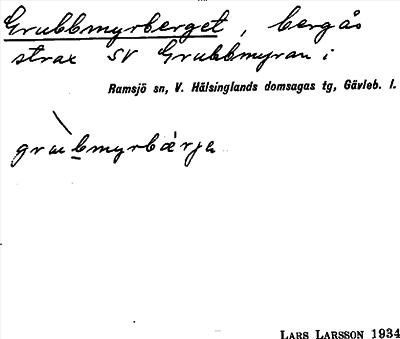 Grubbmyrberget, bergås
strax SV Grubbmyran i
Ramsjö sn, V. Hälsinglands domsagas tg, Gävleb. l.
grubmyrbærjə
LARS LARSSON 1934